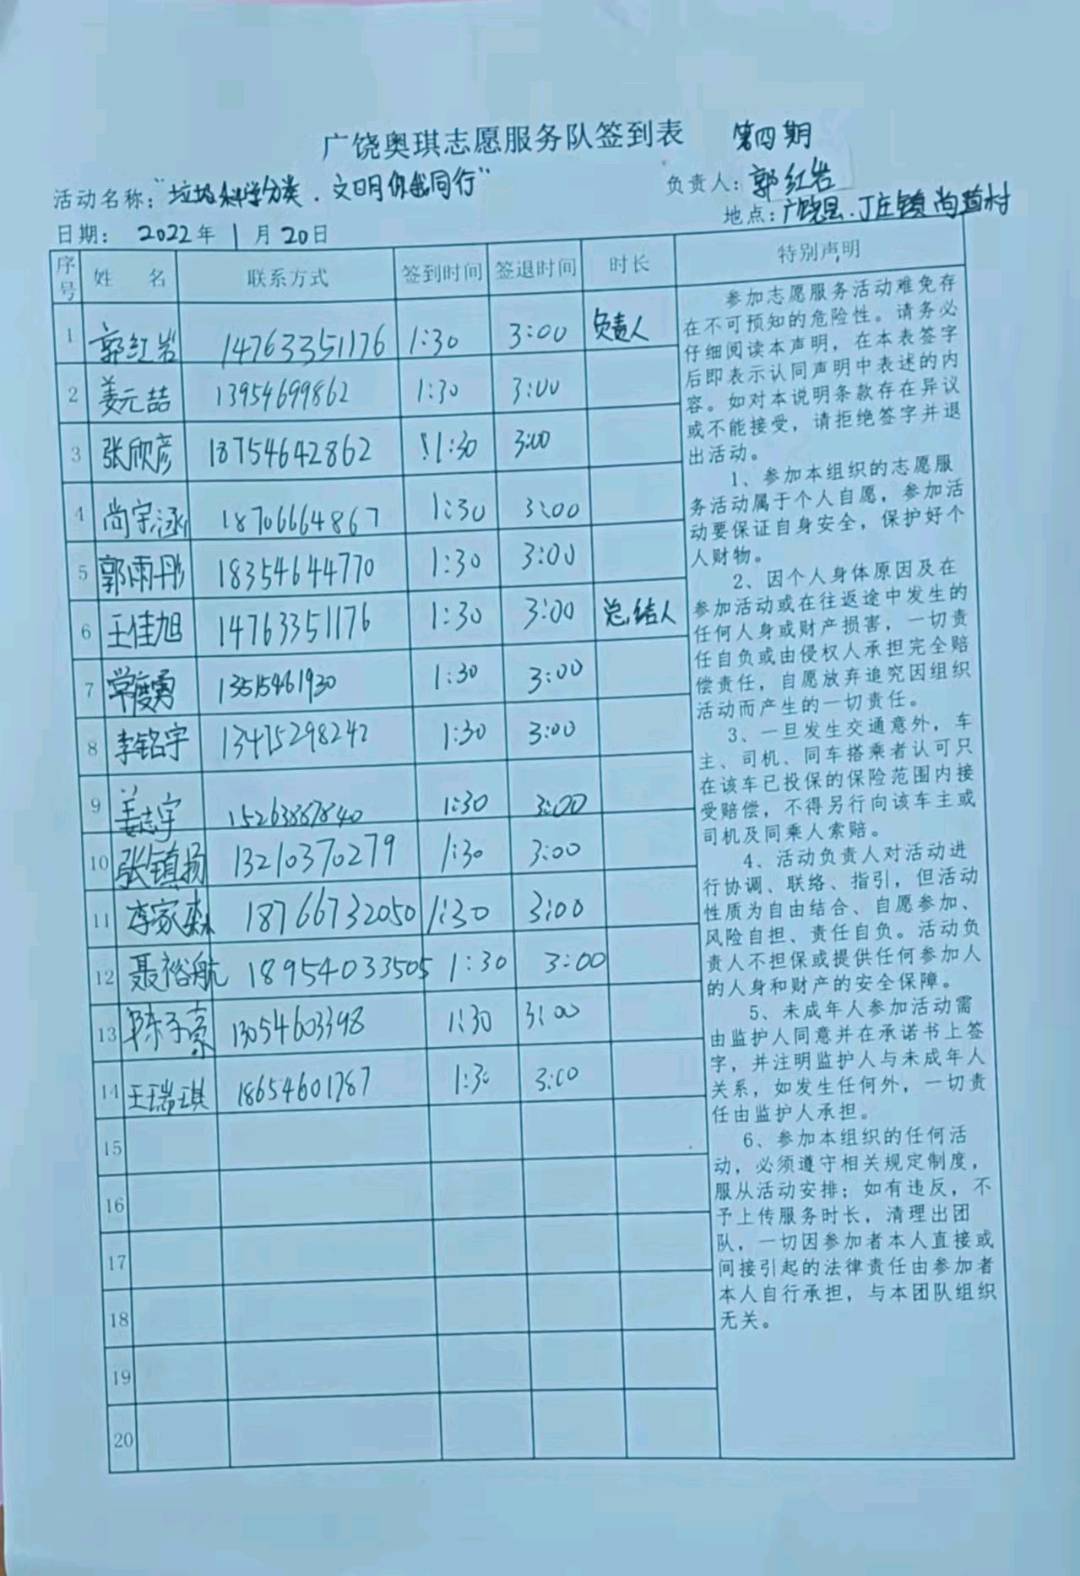 广饶奥琪志愿服务队签到表 第四期
活动名称:"垃圾科学分类.文明你我同行" 负责人:郭红岩
地点:广饶县.丁庄镇尚道村
日期: 2022年 1月20日
序号 姓 名 联系方式 签到时间 签退时间 时长 特别声明
1 郭红岩 14763351176 1:30 3:00 负责人
2 姜元喆 13954699862 1:30 3:00
3 张欣彦 18754642862 1:30 3:00
4 尚宇涵 18706664867 1:30 3:00
5 郭雨彤 18354644770 1:30 3:00
6 王佳旭 14763351176 1:30 3:00 总结人
7 常俊勇 13515461930 1:30 3:00
8 李铭宇 13415298242 1:30 3:00
9 姜志宇 15263867840 1:30 3:00
10 张镇扬 13210370279 1:30 3:00
11 李家森 18766732050 1:30 3:00
12 聂裕航 18954033505 1:30 3:00
13 陈子豪 13054603398 1:30 3:00
14 王瑞琪 18654601787 1:30 3:00
15
16
17
18
19
20
参加志愿服务活动难免存
在不可预知的危险性。请务必
仔细阅读本声明，在本表签字
后即表示认同声明中表述的内
容。如对本说明条款存在异议
或不能接受，请拒绝签字并退
出活动。
1、参加本组织的志愿服
务活动属于个人自愿，参加活
动要保证自身安全，保护好个
人财物。
2、因个人身体原因及在
参加活动或在往返途中发生的
任何人身或财产损害，一切责
任自负或由侵权人承担完全赔
偿责任，自愿放弃追究因组织
活动而产生的一切责任。
3、一旦发生交通意外，车
主、司机、同车搭乘者认可只
在该车已投保的保险范围内接
受赔偿，不得另行向该车主或
司机及同乘人索赔。
4、活动负责人对活动进
行协调、联络、指引，但活动
性质为自由结合、自愿参加、
风险自担、责任自负。活动负
责人不担保或提供任何参加人
的人身和财产的安全保障。
5、未成年人参加活动需
由监护人同意并在承诺书上签
字，并注明监护人与未成年人
关系，如发生任何外，一切责
任由监护人承担。
6、参加本组织的任何活
动，必须遵守相关规定制度，
服从活动安排；如有违反，不
予上传服务时长，清理出团
队，一切因参加者本人直接或
间接引起的法律责任由参加者
本人自行承担，与本团队组织
无关。